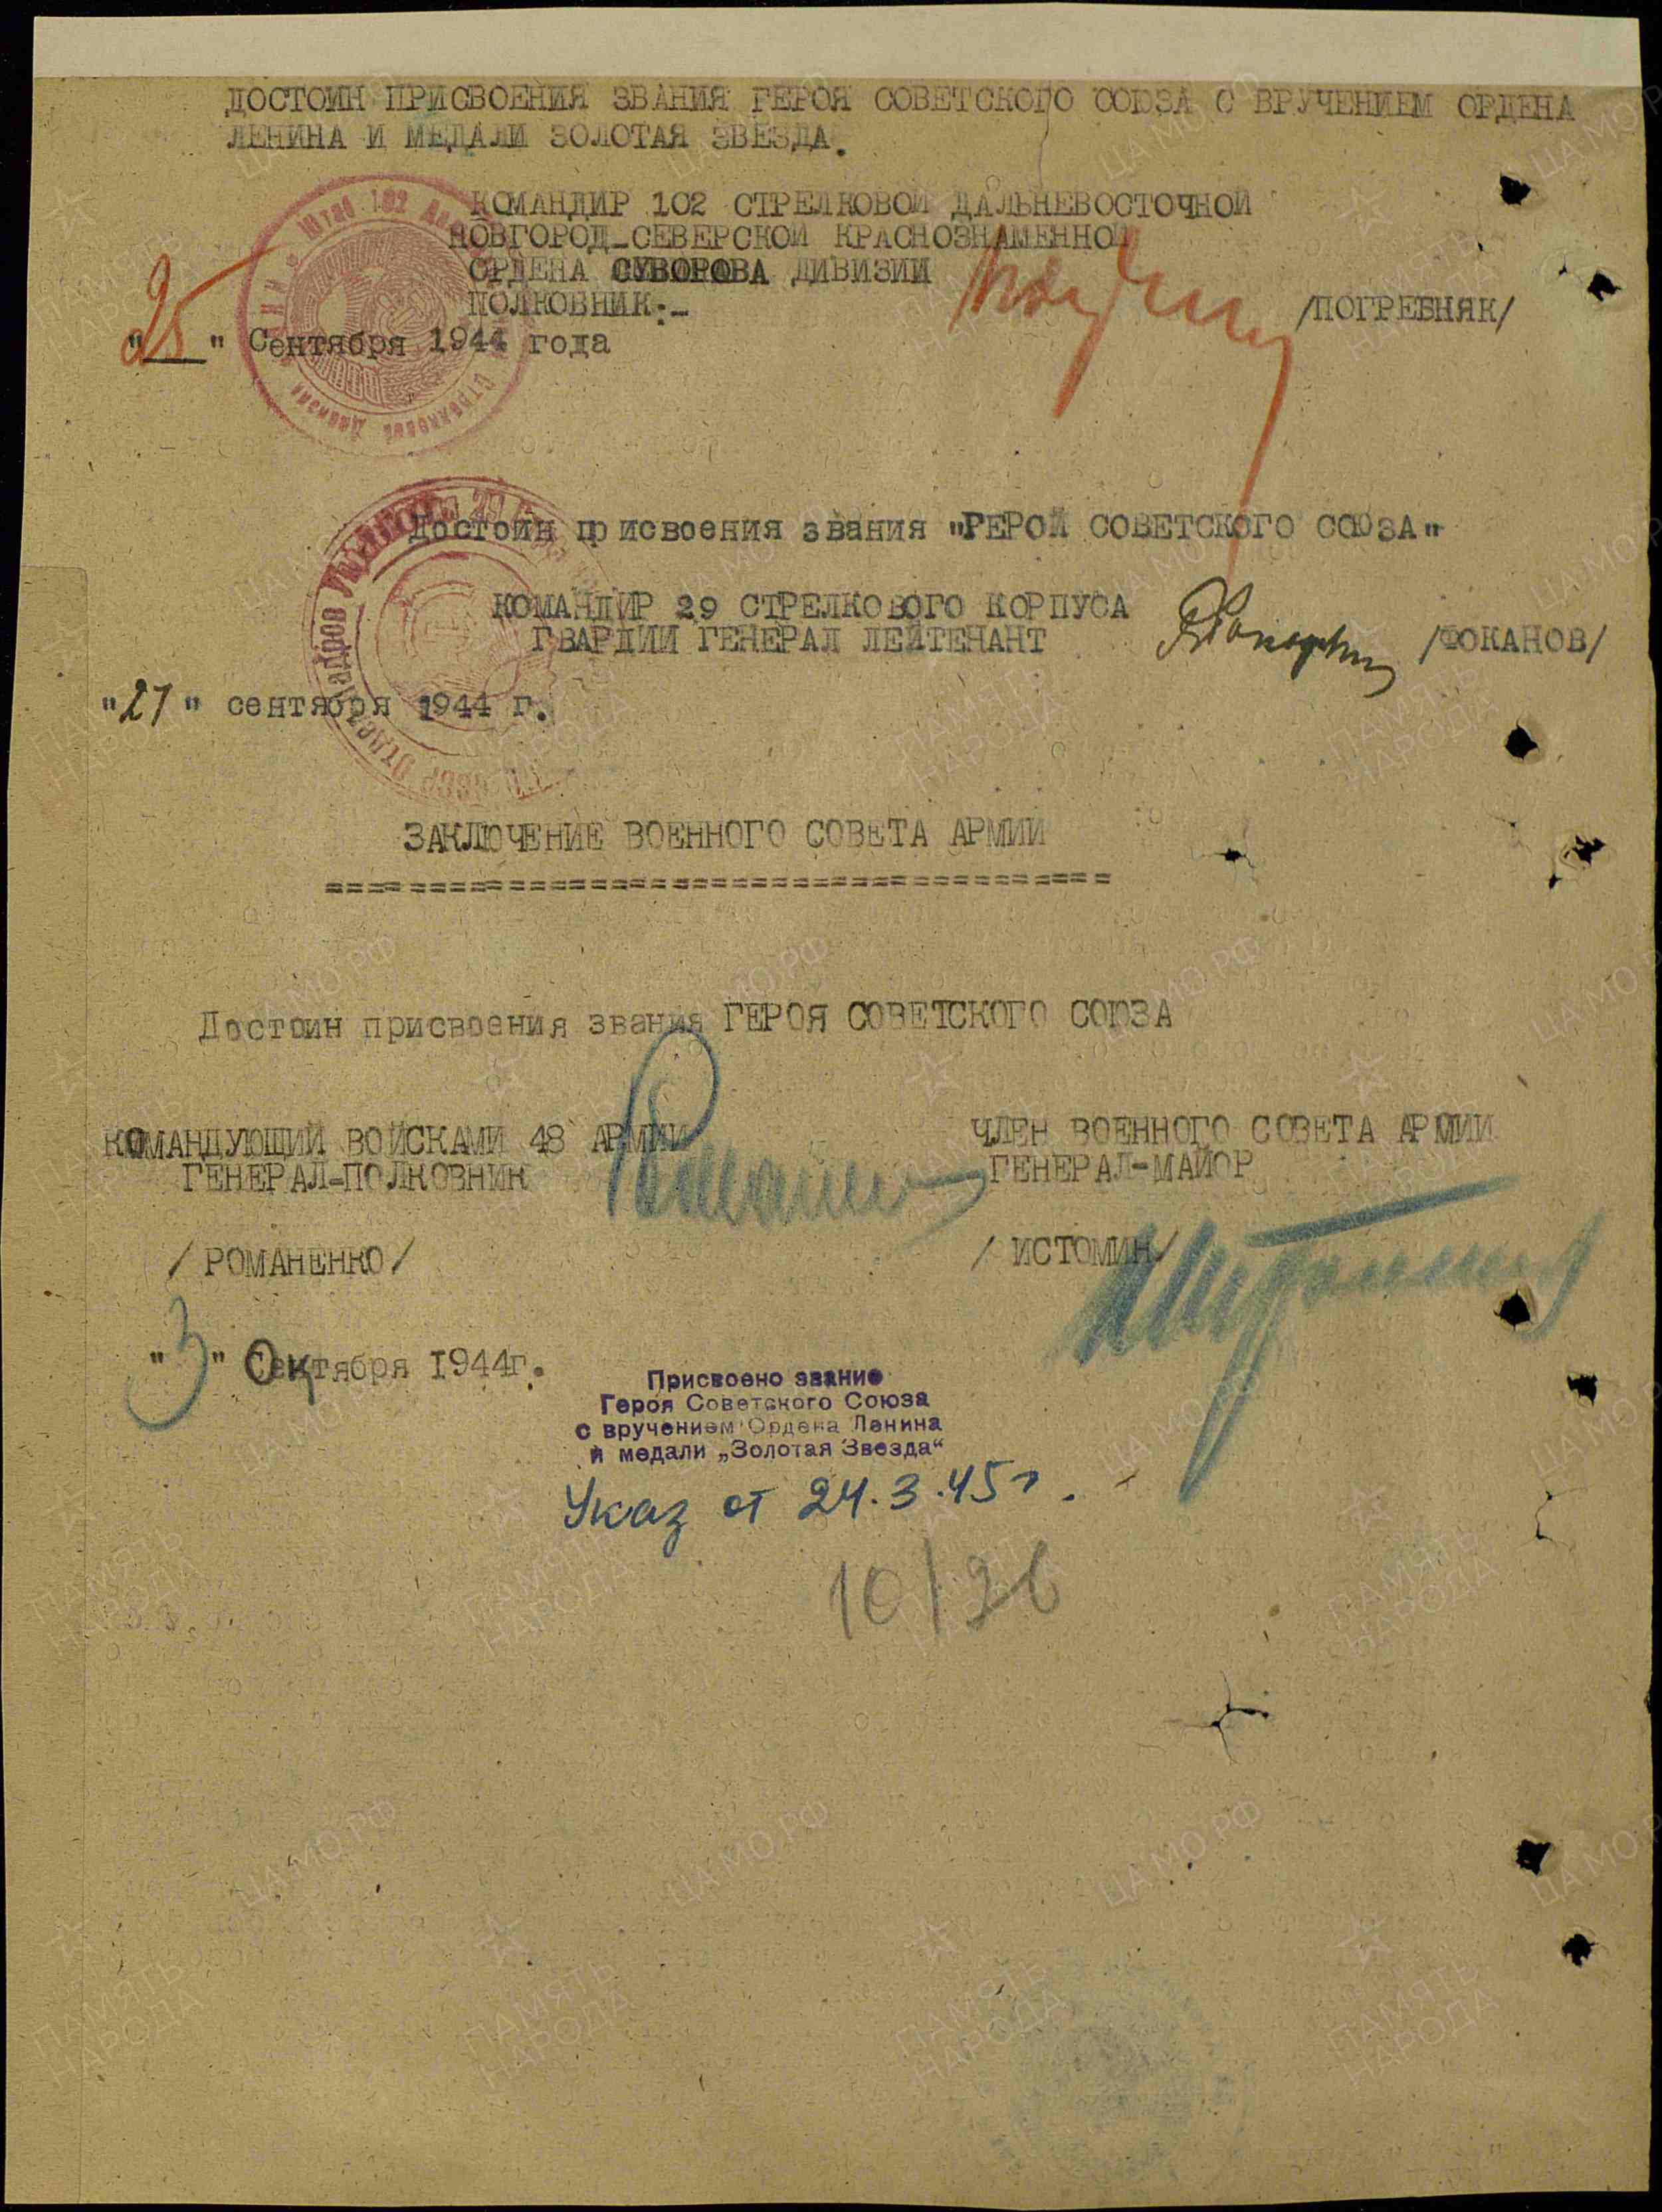 ДОСТОИН ПРИСВОЕНИЯ ЗВАНИЯ ГЕРОЯ СОВЕТСКОГО СОЮЗА С ВРУЧЕНИЕМ ОРДЕНА
ЛЕНИНА И МЕДАЛИ ЗОЛОТАЯ ЗВЕЗДА.
КОМАНДИР 102 СТРЕЛКОВОЙ ДАЛЬНЕВОСТОЧНОЙ
НОВГОРОД-СЕВЕРСКОЙ КРАСНОЗНАМЕННОЙ
ОРДЕНА СУВОРОВА ДИВИЗИИ
ПОЛКОВНИК:- /ПОГРЕБНЯК/
"25" Сентября 1944 года
Достоин присвоения звания "ГЕРОЙ СОВЕТСКОГО СОЮЗА"
КОМАНДИР 29 СТРЕЛКОВОГО КОРПУСА
ГВАРДИИ ГЕНЕРАЛ ЛЕЙТЕНАНТ /ФОКАНОВ/
"27" сентября 1944 г.
ЗАКЛЮЧЕНИЕ ВОЕННОГО СОВЕТА АРМИИ
Достоин присвоения звания ГЕРОЯ СОВЕТСКОГО СОЮЗА
КОМАНДУЮЩИЙ ВОЙСКАМИ 48 АРМИИ
ГЕНЕРАЛ-ПОЛКОВНИК
/РОМАНЕНКО/
ЧЛЕН ВОЕННОГО СОВЕТА АРМИИ
ГЕНЕРАЛ-МАЙОР
/ ИСТОМИН/
"3" Октября 1944г.
Присвоено звание
Героя Советского Союза
с вручением Ордена Ленина
и медали „Золотая Звезда“
Указ от 24.3.45г.
ПАМЯТЬ НАРОДА
ЦАМО.РФ